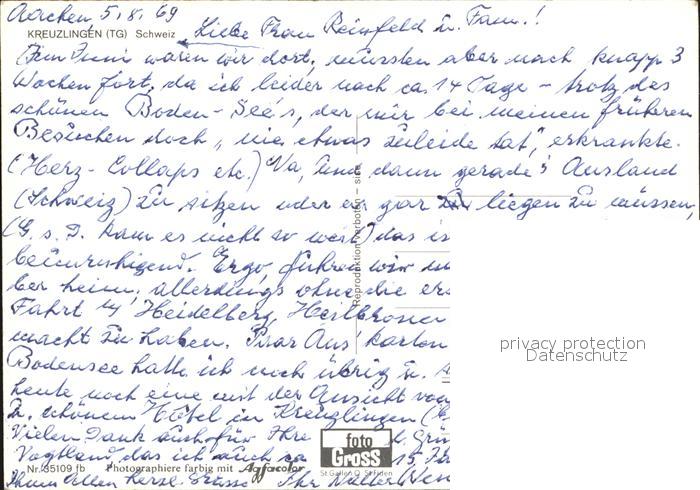 Aachen 5.8.69
KREUZLINGEN (TG) Schweiz
Liebe Frau Reinsfeld u. Fam.!
Im Juni waren wir dort, mussten aber nach knapp 3
Wochen fort, da ich leider nach ca 14 Tage - trotz des
schönen Boden-See's, der mir bei meinen früheren
Besuchen doch "nie etwas zuleide tat", erkrankte.
(Herz-Collaps etc.) Na, und dann gerade i. Ausland
(Schweiz) zu sitzen oder er gar zu liegen zu müssen,
(G. s. D. kam es nicht so weit) das is
beunruhigend. Ergo, fuhren wir
ber heim, allerdings ohne die
Fahrt Heidelberg, Heilbronn
macht zu haben. Paar Aus karten
Bodensee hatte ich noch übrig u.
heute noch eine mit der Ansicht von
u. schönem Hotel in Kreuzlingen
Vielen Dank auch für Ihre Grü
Vogtland, das ich auch ca 15
Ihnen allen herzl. Grüsse Ihr Walter
Reproduktion verboten - sie
privacy protection
Datenschutz
foto
GROSS
St. Gallen O. St. Fiden
Nr. 35109 fb Photographiere farbig mit Agfacolor